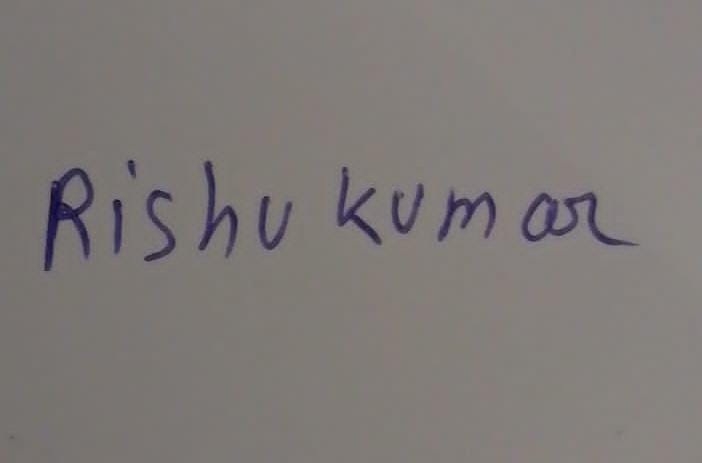 Rishu kumar